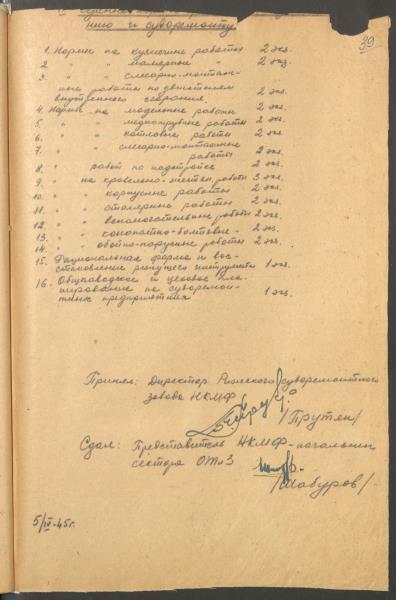 39
нию и судоремонту
1. Нормы на кузнечные работы 2 экз.
2. " " малярные " 2 экз.
3. " " слесарно-монтаж-
ные работы по двигателям
внутреннего сгорания 2 экз.
4. Нормы на модельные работы 2 экз.
5. " " медно-трубные работы 2 экз.
6. " " котловые работы 2 экз.
7. " " слесарно-монтажные
работы 2 экз.
8. " работ по надстройке 2 экз.
9. " на кровельно-жестян. работы 3 экз.
10. " " корпусные работы 2 экз.
11. " " столярные работы 2 экз.
12. " " вспомогательные работы 2 экз.
13. " " конопатно-болтовые " 2 экз.
14. " " обойно-парусные работы 2 экз.
15. Рациональная форма и вос-
становление режущего инструмента 1 экз.
16. Общезаводское и цеховое пла-
нирование на судоремон-
тных предприятиях 1 экз.
Принял: Директор Рижского судоремонтного
завода НКМФ
/Прутян/
Сдал: Представитель НКМФ - начальник
сектора ОТиЗ
/Шабуров/
5/IV-45г.